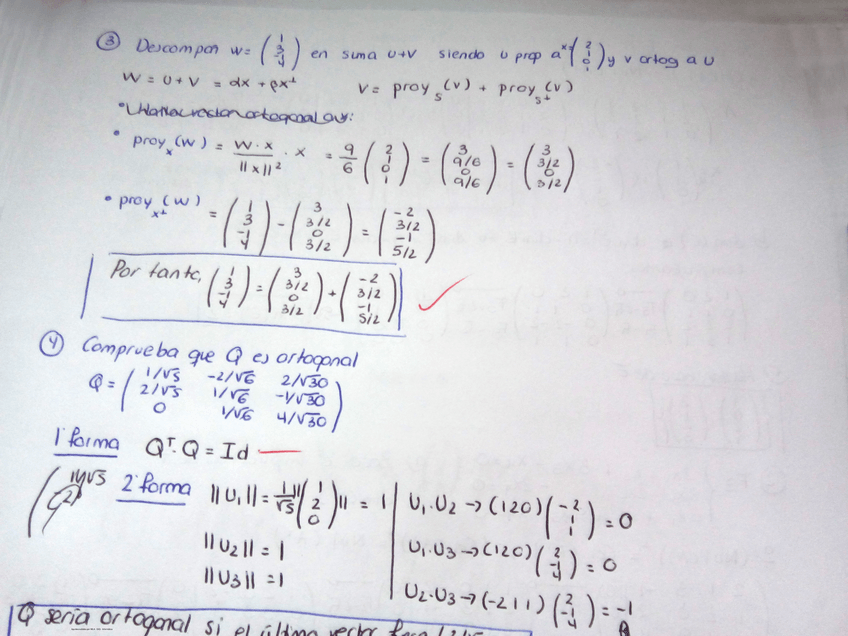 ③ Descompón w = (1 3 -1 4) en suma u+v siendo u prop a x=(2 1 0 1) y v ortog a u
W = u + v = αx + βx⊥ v = proy_S(v) + proy_S⊥(v)
• proy_x(w) = w·x / ||x||² · x = 9/6 (2 1 0 1) = (3 9/6 0 9/6) = (3 3/2 0 3/2)
• proy_x⊥(w) = (1 3 -1 4) - (3 3/2 0 3/2) = (-2 3/2 -1 5/2)
Por tanto, (1 3 -1 4) = (3 3/2 0 3/2) + (-2 3/2 -1 5/2)
④ Comprueba que Q es ortogonal
Q = (1/√5 -2/√6 2/√30
2/√5 1/√6 -1/√30
0 1/√6 4/√30)
1ª forma Qᵀ·Q = Id
2ª forma ||U1|| = 1/√5 ||(1 2 0)|| = 1
||U2|| = 1
||U3|| = 1
U1·U2 → (120)(-2 1 1) = 0
U1·U3 → (120)(2 -1 4) = 0
U2·U3 → (-211)(2 -1 -4) = -1
Q sería ortogonal si el último vector